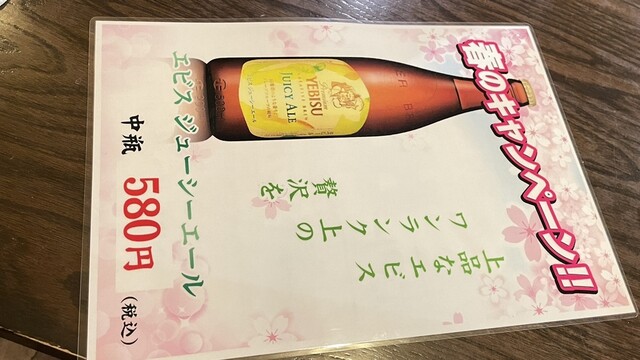 春のキャンペーン!!
上品なエビス
ワンランク上の
贅沢を
YEBISU
JUICY ALE
エビス ジューシーエール
中瓶 580円 (税込)